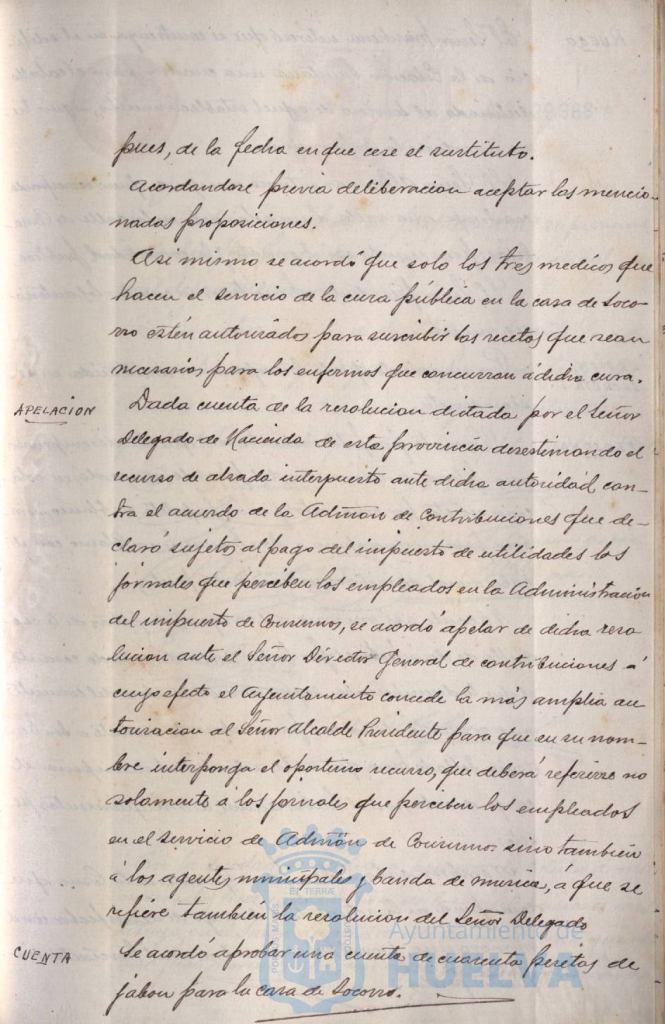 pues, de la fecha en que cese el sustituto.
Acordandose previa deliberacion aceptar las mencio-
nadas proposiciones.
Asi mismo se acordó que solo los tres medicos que
hacen el servicio de la cura pública en la casa de Soco-
rro estén autorizados para suscribir las recetas que sean
necesarias para los enfermos que concurran á dicha cura.
APELACION
Dada cuenta de la resolucion dictada por el Señor
Delegado de Hacienda de esta provincia desestimando el
recurso de alzada interpuesto ante dicha autoridad con-
tra el acuerdo de la Admón de Contribuciones que de-
claró sujetos al pago del impuesto de utilidades los
jornales que perciben los empleados en la Administracion
del impuesto de Consumos, se acordó apelar de dicha reso
lucion ante el Señor Director General de contribuciones á
cuyo efecto el Ayuntamiento concede la más amplia au
torizacion al Señor Alcalde Presidente para que en su nom-
bre interponga el oportuno recurso, que deberá referirse no
solamente á los jornales que perciben los empleados
en el servicio de Admón de Consumos sino también
á los agentes municipales y banda de musica, á que se
refiere también la resolucion del Señor Delegado
CUENTA
Se acordó aprobar una cuenta de cuarenta pesetas de
jabon para la casa de Socorro.
Ayuntamiento de
HUELVA